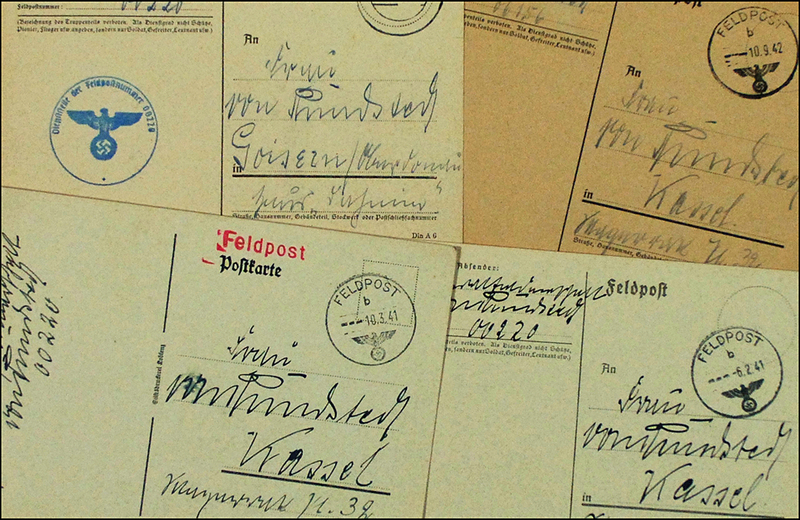 Feldpostnummer: 00220
(Bezeichnung des Truppenteils verboten. Als Dienstgrad nicht Schütze,
Pionier, Flieger usw angeben, sondern nur Soldat, Gefreiter, Leutnant usw.)
Dienststelle der Feldpostnummer 00220
An
Frau
von Rundstedt
Goisern/Oberdonau
in
Haus
Straße, Hausnummer, Gebäudeteil, Stockwerk oder Postschließfachnummer
Din A 6
00156
verboten. Als Dienstgrad nicht Schütze,
angeben, sondern nur Soldat, Gefreiter, Leutnant usw.)
FELDPOST
b
10.9.42
An
Frau
von Rundstedt
in
Kassel
Straße, Hausnummer, Gebäude
00220
Feldpost
Postkarte
FELDPOST
b
10.3.41
Frau
von Rundstedt
Kassel
Absender:
von Rundstedt
00220
verboten. Als Dienstgrad nicht Schütze,
sondern nur Soldat, Gefreiter, Leutnant usw.)
Feldpost
FELDPOST
b
-6.2.41
An
Frau
von Rundstedt
Kassel
in